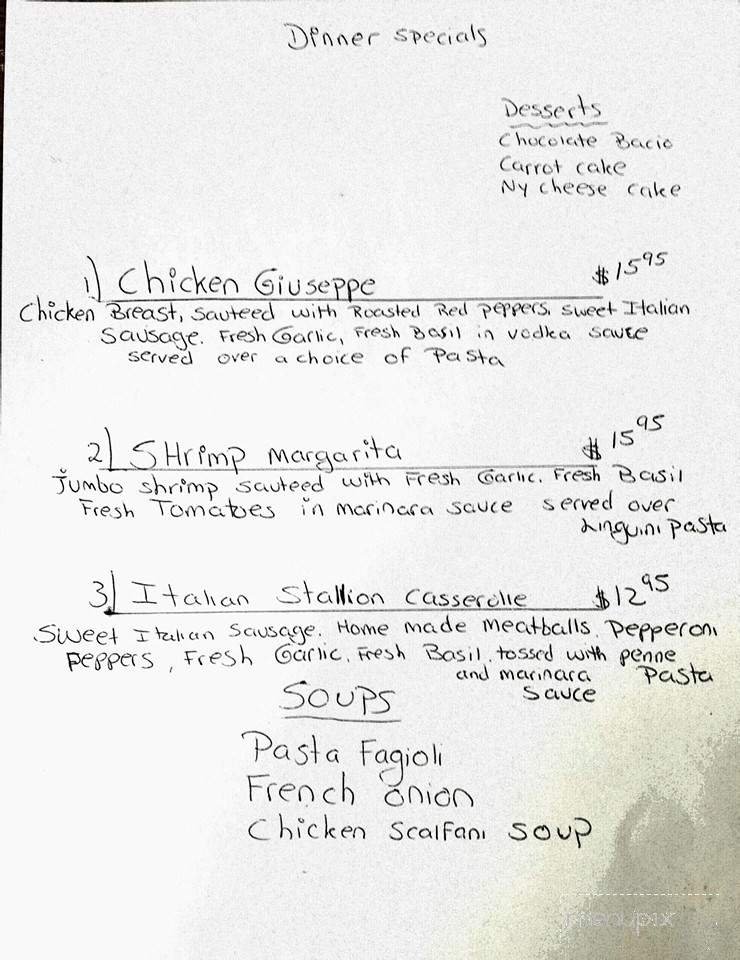 Dinner specials
Desserts
Chocolate Bacio
Carrot cake
Ny cheese cake
1) Chicken Giuseppe $15 95
Chicken Breast, sauteed with Roasted Red peppers, sweet Italian
Sausage. Fresh Garlic, Fresh Basil in vodka sauce
served over a choice of Pasta
2) SHrimp Margarita $15 95
Jumbo shrimp sauteed with Fresh Garlic. Fresh Basil
Fresh Tomatoes in marinara sauce served over
Linguini pasta
3) Italian Stallion Casserolie $12 95
Sweet Italian Sausage. Home made meatballs, Pepperoni
peppers, Fresh Garlic. Fresh Basil. tossed with penne
and marinara Pasta
sauce
SOUPS
Pasta Fagioli
French onion
Chicken Scalfani soup
menupix